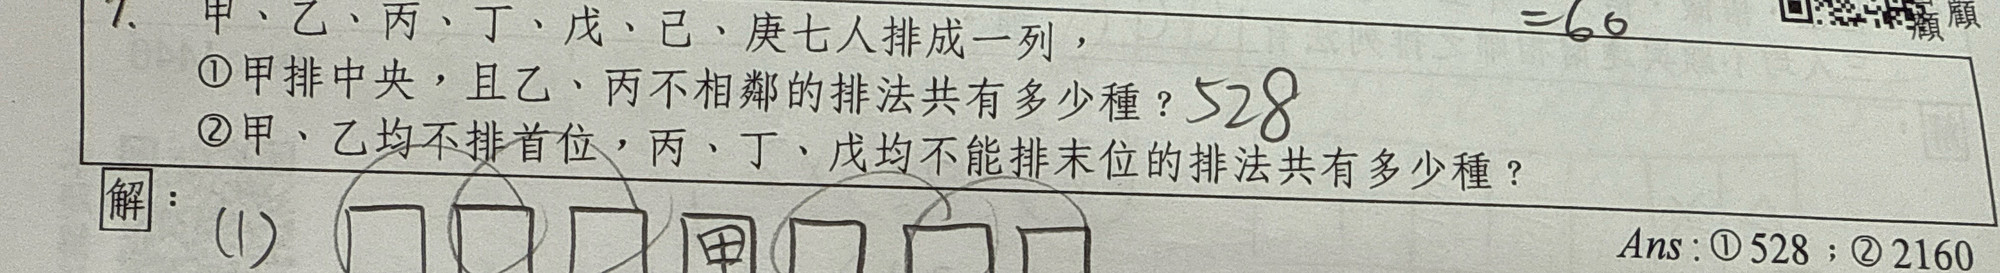 7. 甲、乙、丙、丁、戊、已、庚七人排成一列，
=60
顧
①甲排中央，且乙、丙不相鄰的排法共有多少種？528
②甲、乙均不排首位，丙、丁、戊均不能排末位的排法共有多少種？
解：
(1) 甲
Ans：①528；②2160